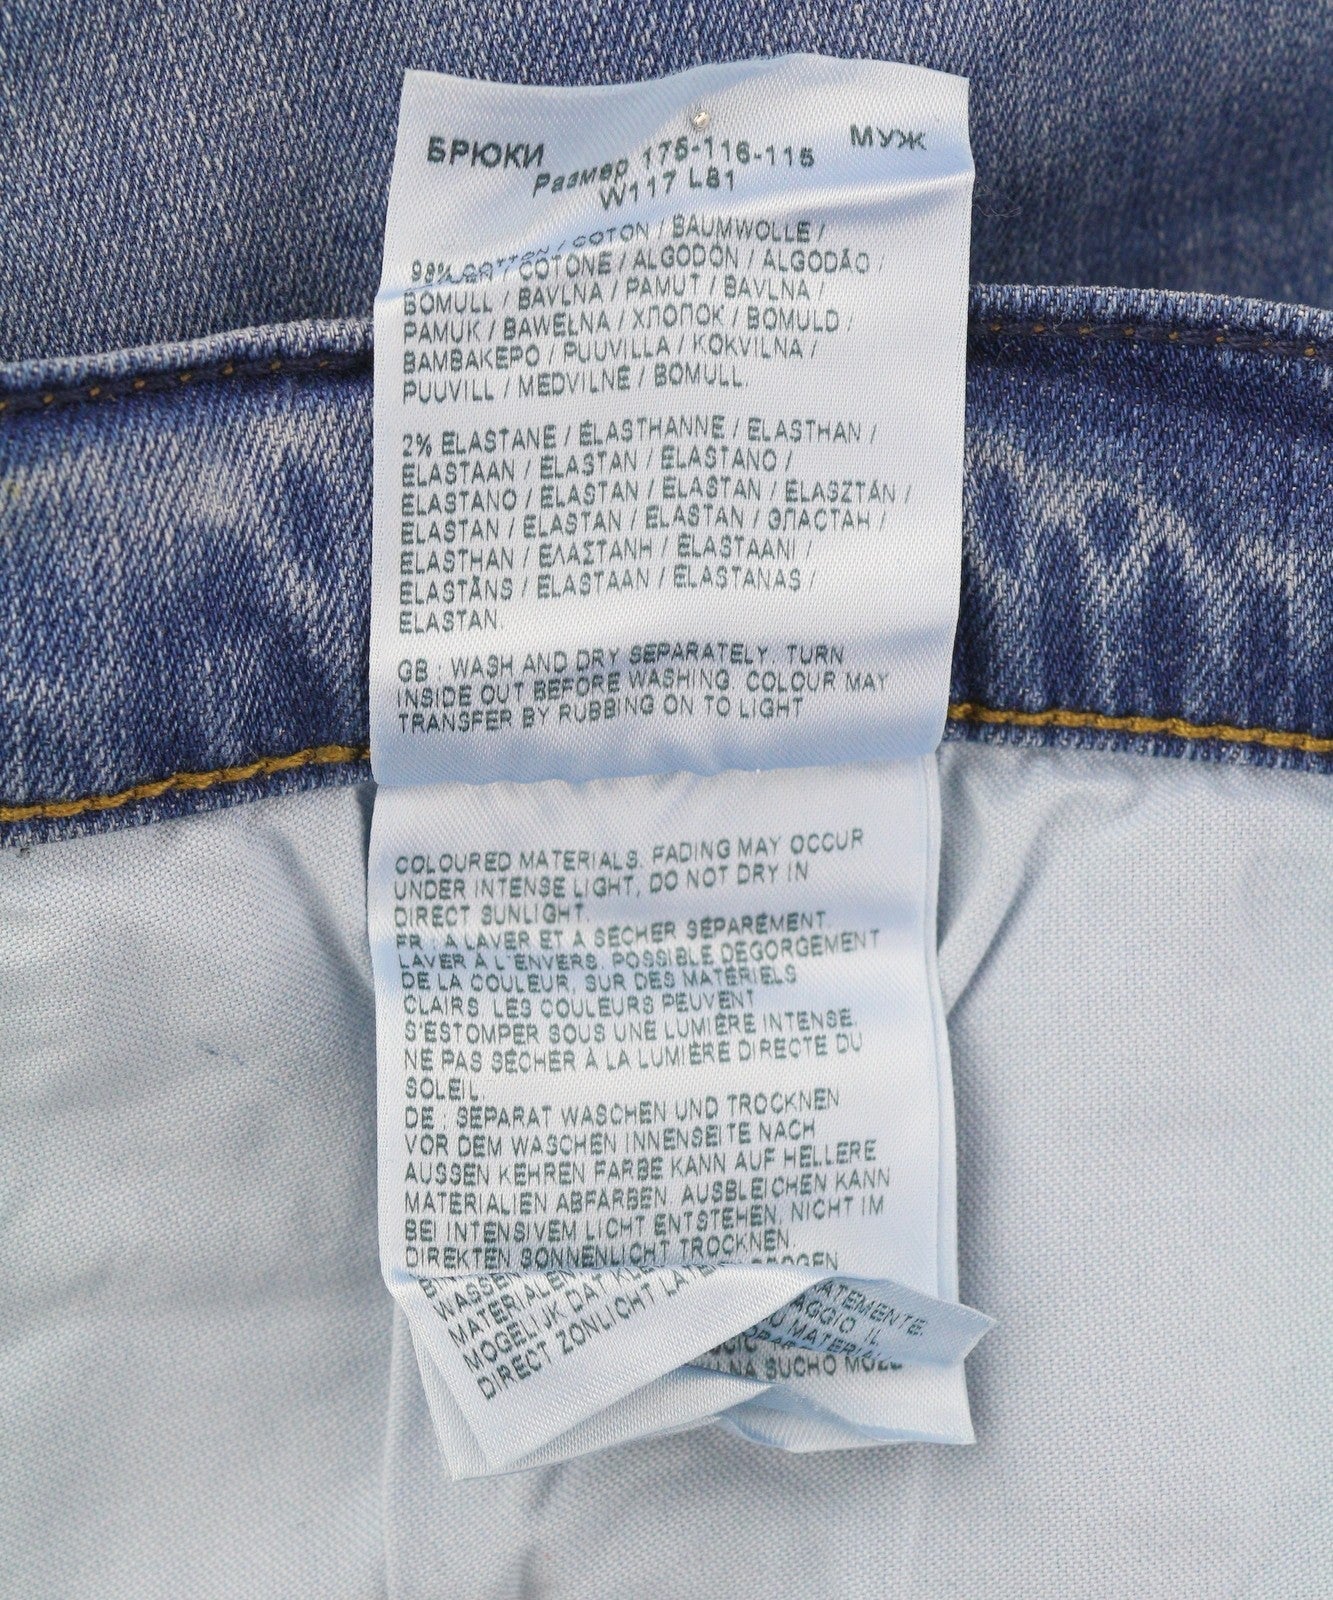 БРЮКИ МУЖ
Размер 175-116-115
W117 L81
98% COTTON / COTON / BAUMWOLLE /
COTONE / ALGODON / ALGODÃO /
BOMULL / BAVLNA / PAMUT / BAVLNA /
PAMUK / BAWEŁNA / ХЛОПОК / BOMULD /
BAMBAKEPO / PUUVILLA / KOKVILNA /
PUUVILL / MEDVILNE / BOMULL.
2% ELASTANE / ÉLASTHANNE / ELASTHAN /
ELASTAAN / ELASTAN / ELASTANO /
ELASTANO / ELASTAN / ELASTAN / ELASZTÁN /
ELASTAN / ELASTAN / ELASTAN / ЭЛАСТАН /
ELASTHAN / ΕΛΑΣΤΑΝΗ / ELASTAANI /
ELASTĀNS / ELASTAAN / ELASTANAS /
ELASTAN
GB : WASH AND DRY SEPARATELY. TURN
INSIDE OUT BEFORE WASHING. COLOUR MAY
TRANSFER BY RUBBING ON TO LIGHT
COLOURED MATERIALS. FADING MAY OCCUR
UNDER INTENSE LIGHT, DO NOT DRY IN
DIRECT SUNLIGHT.
FR : A LAVER ET A SÉCHER SÉPARÉMENT.
LAVER À L'ENVERS. POSSIBLE DÉGORGEMENT
DE LA COULEUR, SUR DES MATÉRIELS
CLAIRS. LES COULEURS PEUVENT
S'ESTOMPER SOUS UNE LUMIÈRE INTENSE.
NE PAS SÉCHER À LA LUMIÈRE DIRECTE DU
SOLEIL.
DE : SEPARAT WASCHEN UND TROCKNEN
VOR DEM WASCHEN INNENSEITE NACH
AUSSEN KEHREN FARBE KANN AUF HELLERE
MATERIALIEN ABFÄRBEN. AUSBLEICHEN KANN
BEI INTENSIVEM LICHT ENTSTEHEN, NICHT IM
DIREKTEN SONNENLICHT TROCKNEN
WASSEN
MATERIALEN
MOGELIJK DAT
DIRECT ZONLICHT
SUCHO